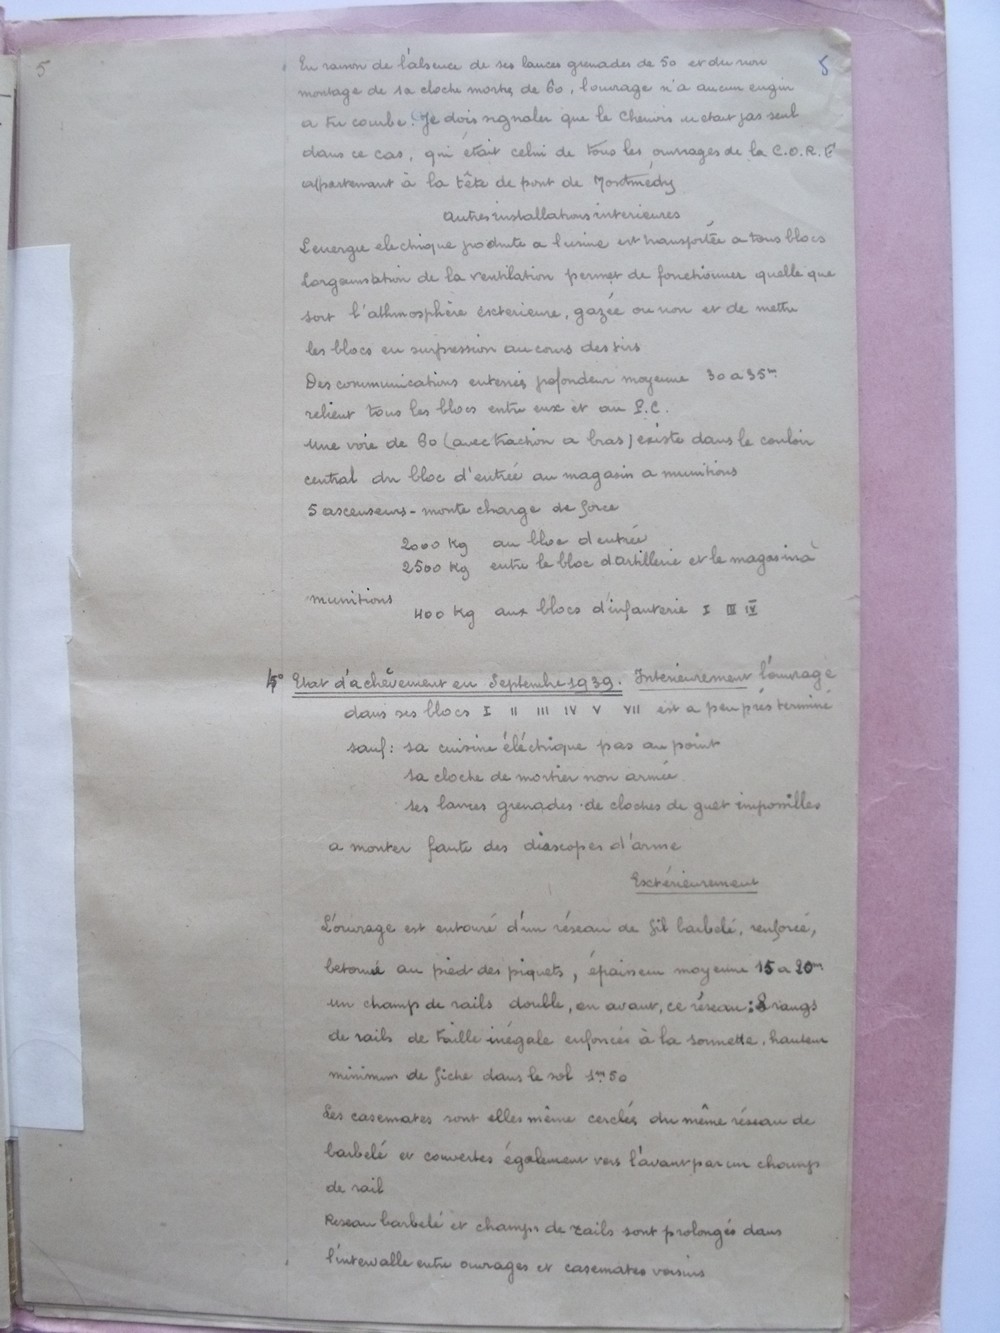 5
5
En raison de l'absence de ses lances grenades de 50 et du non
montage de sa cloche mortier de 60, l'ouvrage n'a aucun engin
a tir courbe. Je dois signaler que le Chenois n'etait pas seul
dans ce cas, qui était celui de tous les ouvrages de la C.O.R.F
appartenant à la tête de pont de Montmédy
autres installations interieures
L'energie electrique produite a l'usine est transportée a tous blocs
L'organisation de la ventilation permet de fonctionner quelle que
soit l'athmosphère éxterieure, gazée ou non et de mettre
les blocs en surpression au cours des tirs
Des communications enterrés profondeur moyenne 30 a 35m
relient tous les blocs entre eux et au P.C.
Une voie de 60 (avec traction a bras) existe dans le couloir
central du bloc d'entrée au magasin a munitions
5 ascenseurs - monte charge de force
2000 Kg au bloc d'entrée
2500 Kg entre le bloc d'artillerie et le magasin à
munitions
400 Kg aux blocs d'infanterie I III IV
4° Etat d'achèvement en Septembre 1939. Intérieurement l'ouvrage
dans ses blocs I II III IV V VII est a peu près terminé
sauf: sa cuisine éléctrique pas au point
sa cloche de mortier non armée
ses lances grenades de cloches de guet impossibles
a monter faute des diascopes d'arme
Extérieurement
L'ouvrage est entouré d'un réseau de fil barbelé, renforcé,
betonné au pied des piquets, épaisseur moyenne 15 a 20m
un champ de rails double, en avant, ce réseau: 8 rangs
de rails de taille inégale enfoncés à la sonnette. hauteur
minimum de fiche dans le sol 1m50
Les casemates sont elles même cerclés du même réseau de
barbelé et couvertes également vers l'avant par un champ
de rail
Reseau barbelé et champs de rails sont prolongés dans
l'intervalle entre ouvrages et casemates voisins